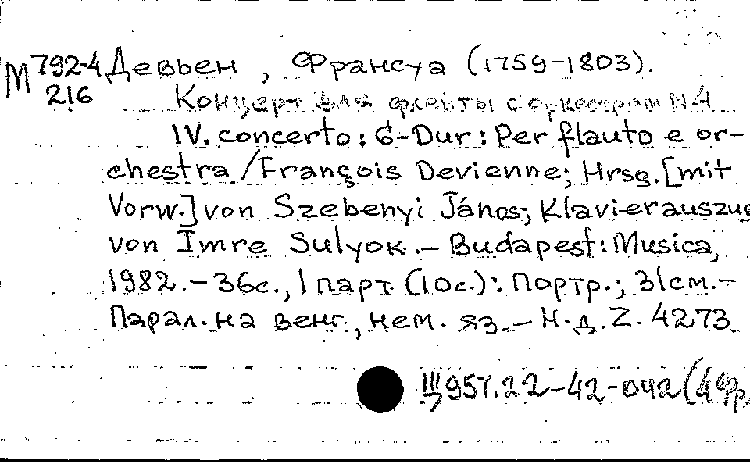 М 792-4 Девьен, Франсуа (1759-1803).
216 Концерт для флейты с оркестром №4
IV. concerto: G-Dur: Per flauto e or-
chestra / François Devienne; Hrsg. [mit
Vorw.] von Szebenyi János; Klavierauszug
von Imre Sulyok. - Budapest: Musica,
1982. - 36с., 1 парт. (10с.): Портр.; 31см. -
Парал. на венг., нем. яз. - Н.д. Z. 4273
Щ957.22-42-042(4Фр)